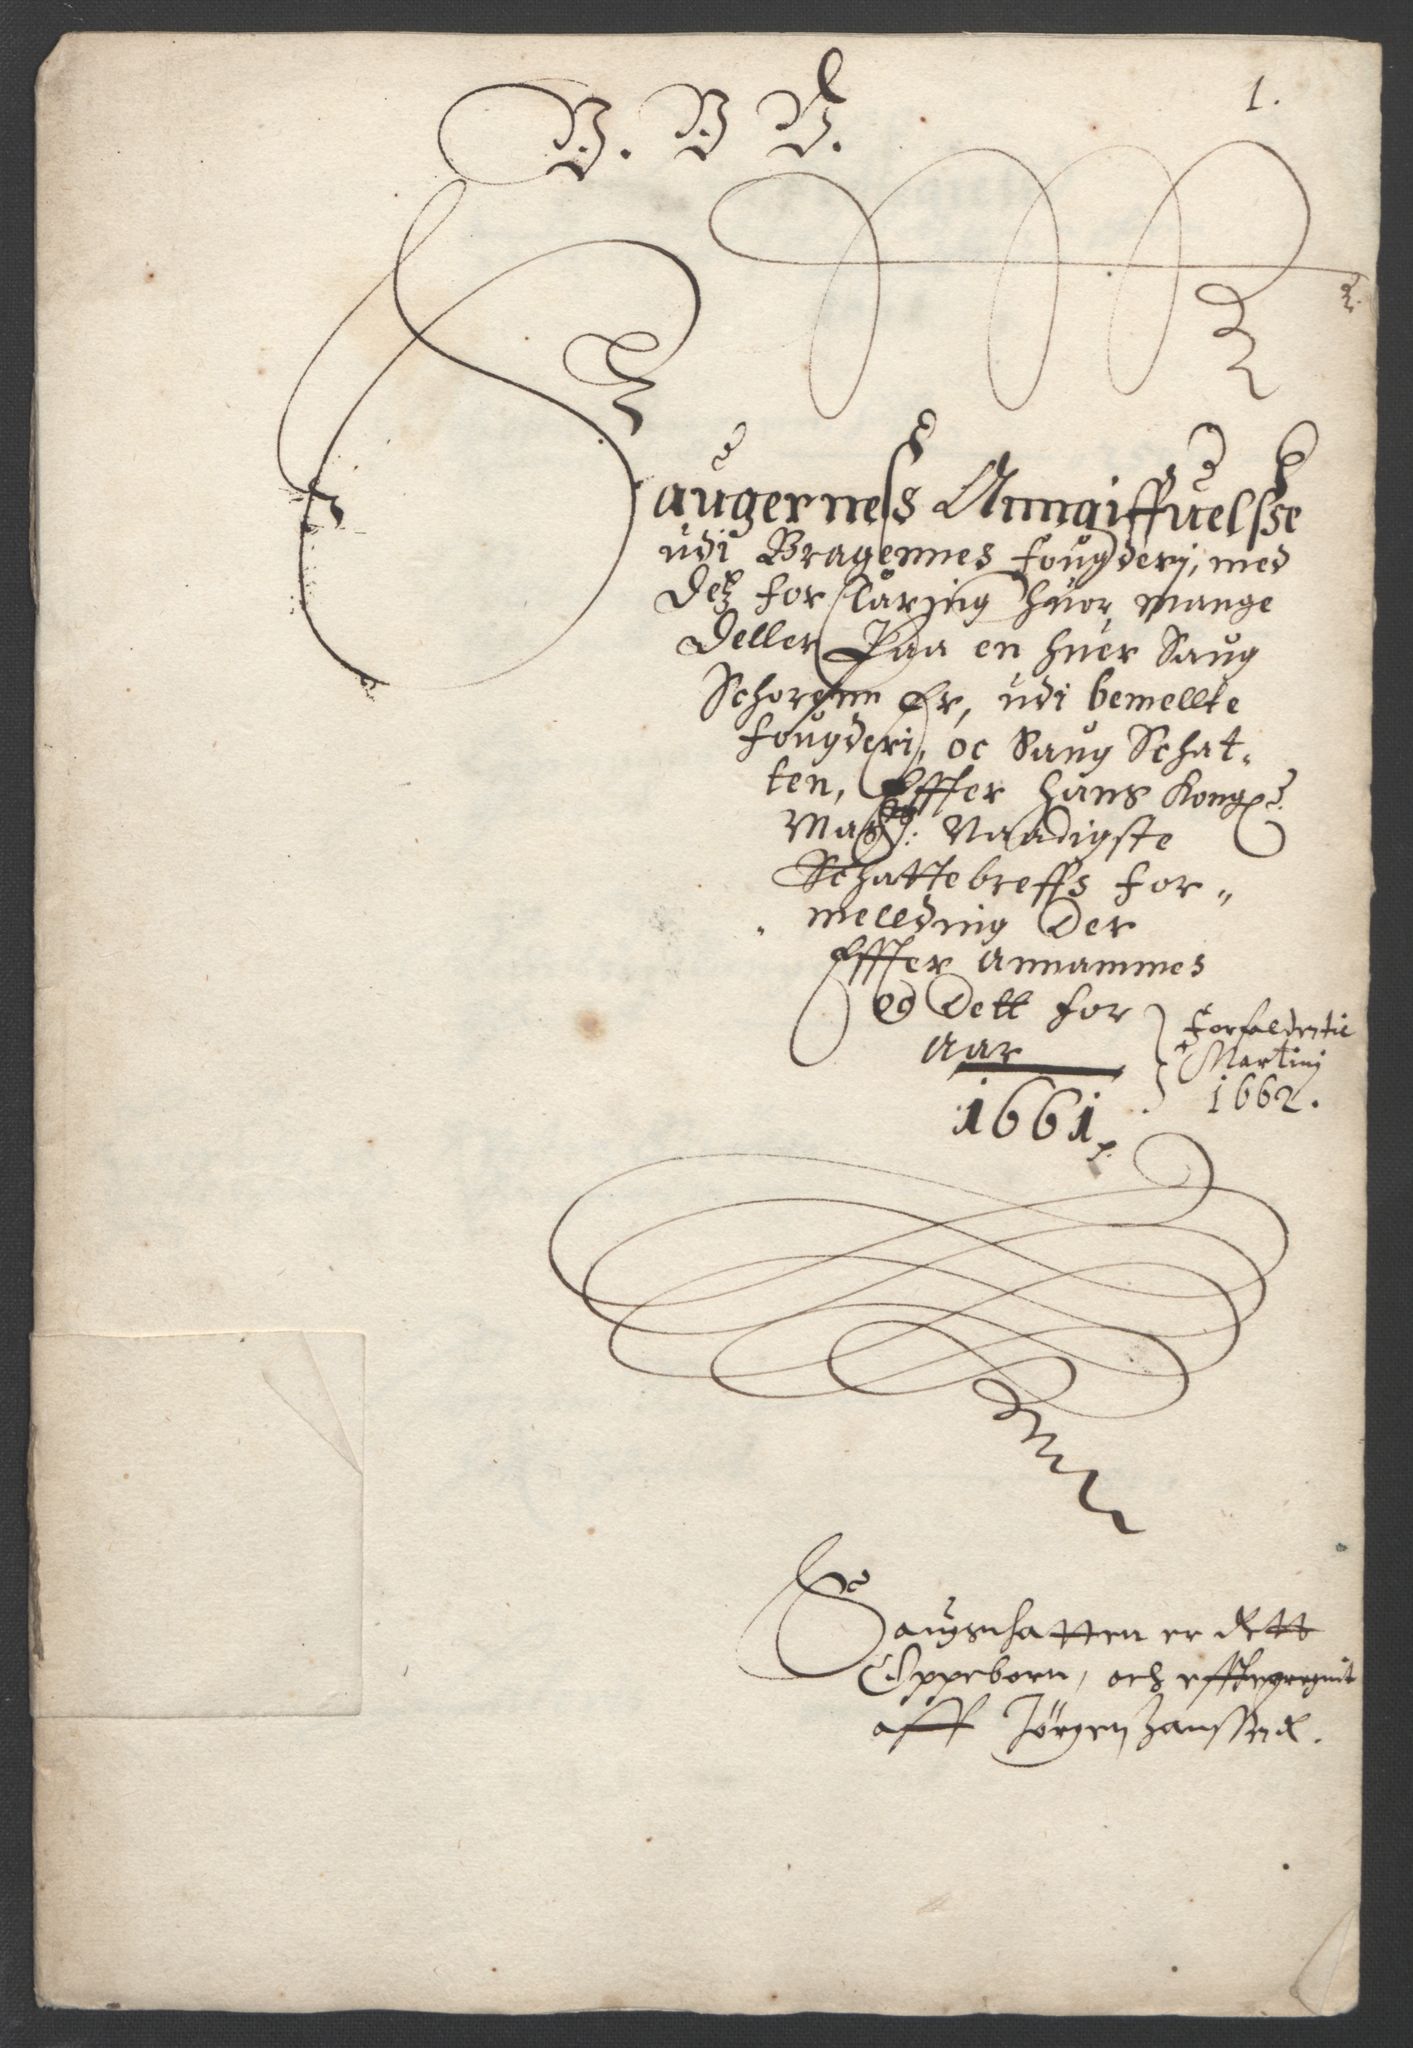 B. B V.
1.
Saugerness Anngiffuelsse
udi Bragernnes fougderj, med
Detz forklaring huor mange
Deller Paa en huer Saug
Schorenn Er, udi bemellte
fougderj, oc Saug Schat-
ten, Effter Hans Kong:
May: Naadigste
Schattebreffs for-
melding Der
Effter annammes
og Dett for
Aar
1661
Forfalden til
Martinj
1662.
Saugschatten er dette
Oppeborn, och
aff Jørgen Hanssen.